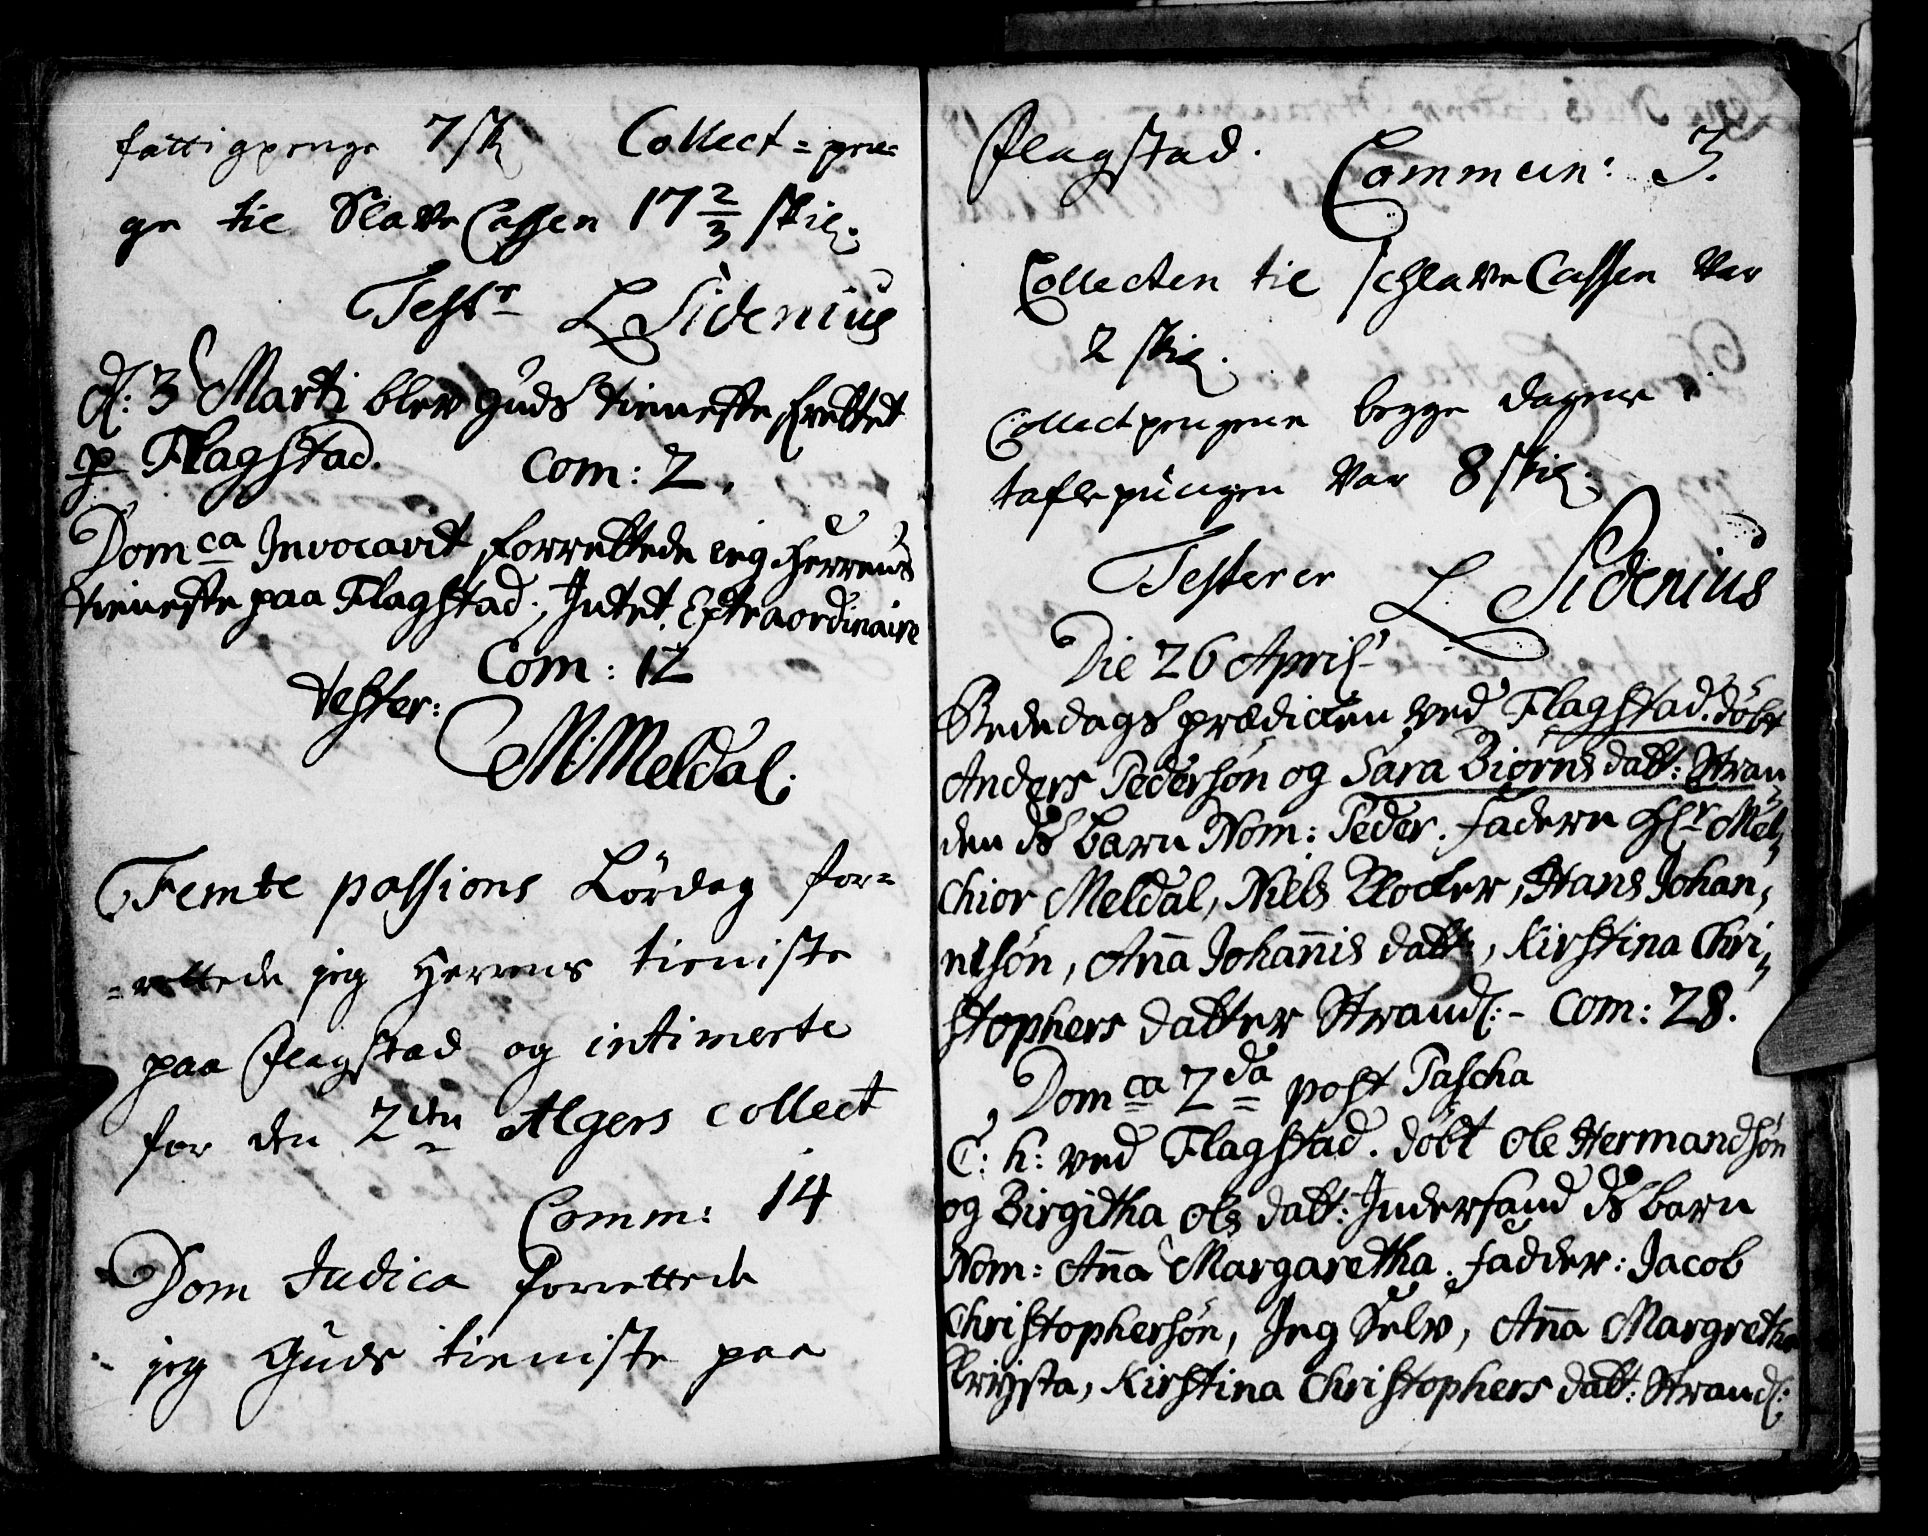 fattigpenge 7 sk Collect=pen=
ge til Slave Cassen 17 2/3 skil.
Testr L Sidenius
d: 3 Marti blev Guds tieneste forrettet
p Flagstad. Com: 2.
Domca Invocavit forrettede ieg Herrens
tieneste paa Flagstad, Intet Extraordinaire
Com: 12
tester:
M: Meldal.
Femte passions Lördag for=
=rettede jeg Herrens tieniste
paa Flagstad og intimerte
for den 2den Algers collect
Comm: 14
Dom Judica forrettede
jeg Guds tieniste paa
Flagstad. Commun: 3.
Collecten til schlave Cassen var
2 skil.
Collectpengene begge dagene i
taflepungen var 8 skil.
Testerer L. Sidenius
Die 26 April
Bededags prædicken ved Flagstad. döbt
Anders Pedersön og Sara Biörns datt: Stran
den ds barn Nom: Peder. faderne Hr Mel,
chior Meldal, Niels Klocker, Hans Johan,
nesön, Aña Johañis datt:, Kirstina Chri,
stophers datter Strand: - Com: 28.
Domca 2da post Pascha
C: h: ved Flagstad. döbt Ole Hermandsön
og Birgitha Ols datt: Indersand ds barn
Nom: Aña Margaretha. fadder: Jacob
Christophersön, Jeg Selv, Aña Margretha
Kristina Christophers datt: Strand: